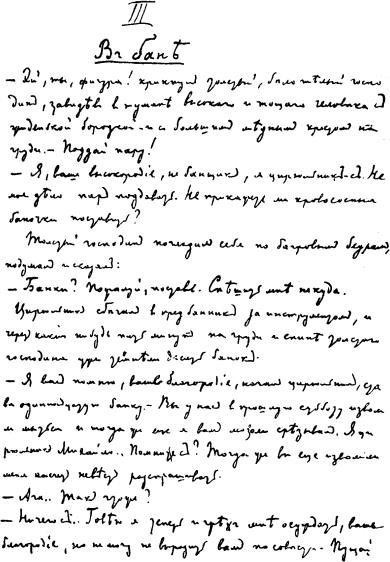 III
Въ банѣ
— Эй, ты, фигура! крикнул толстый, бѣлотѣлый госпо
динъ, завидѣвъ в туманѣ высокаго и тощаго человѣка съ
жиденькой бородкой и с большимъ мѣднымъ крестомъ на
груди. — Поддай пару!
— Я, ваше высокородіе, не банщикъ, я цирульникъ-съ. Не
мое дѣло паръ поддавать. Не прикажете ли кровососныя
баночки поставить?
Толстый господинъ погладилъ себя по багровымъ бедрамъ,
подумалъ и сказалъ:
— Банки? Пожалуй, поставь. Спѣшить мнѣ некуда.
Цирульникъ сбѣгалъ в предбанникъ за инструментомъ, и
черезъ какія нибудь пять минутъ на груди и спинѣ толстаго
господина уже темнѣли десять банокъ.
— Я васъ помню, ваше благородіе, началъ цирульникъ, ста
вя одиннадцатую банку. — Вы у насъ в прошлую субботу изволи
ли мыться и тогда же еще я вамъ мозоли срѣзывалъ. Я ци
рульникъ Михайло.. Помните-съ? Тогда же вы еще изволили
меня насчетъ невѣстъ разспрашивать.
— Ага.. Такъ что же?
— Ничего-съ.. Говѣю я теперь и грѣхъ мнѣ осуждать, ваше
благородіе, но не могу не выразить вамъ по совѣсти. Пущай